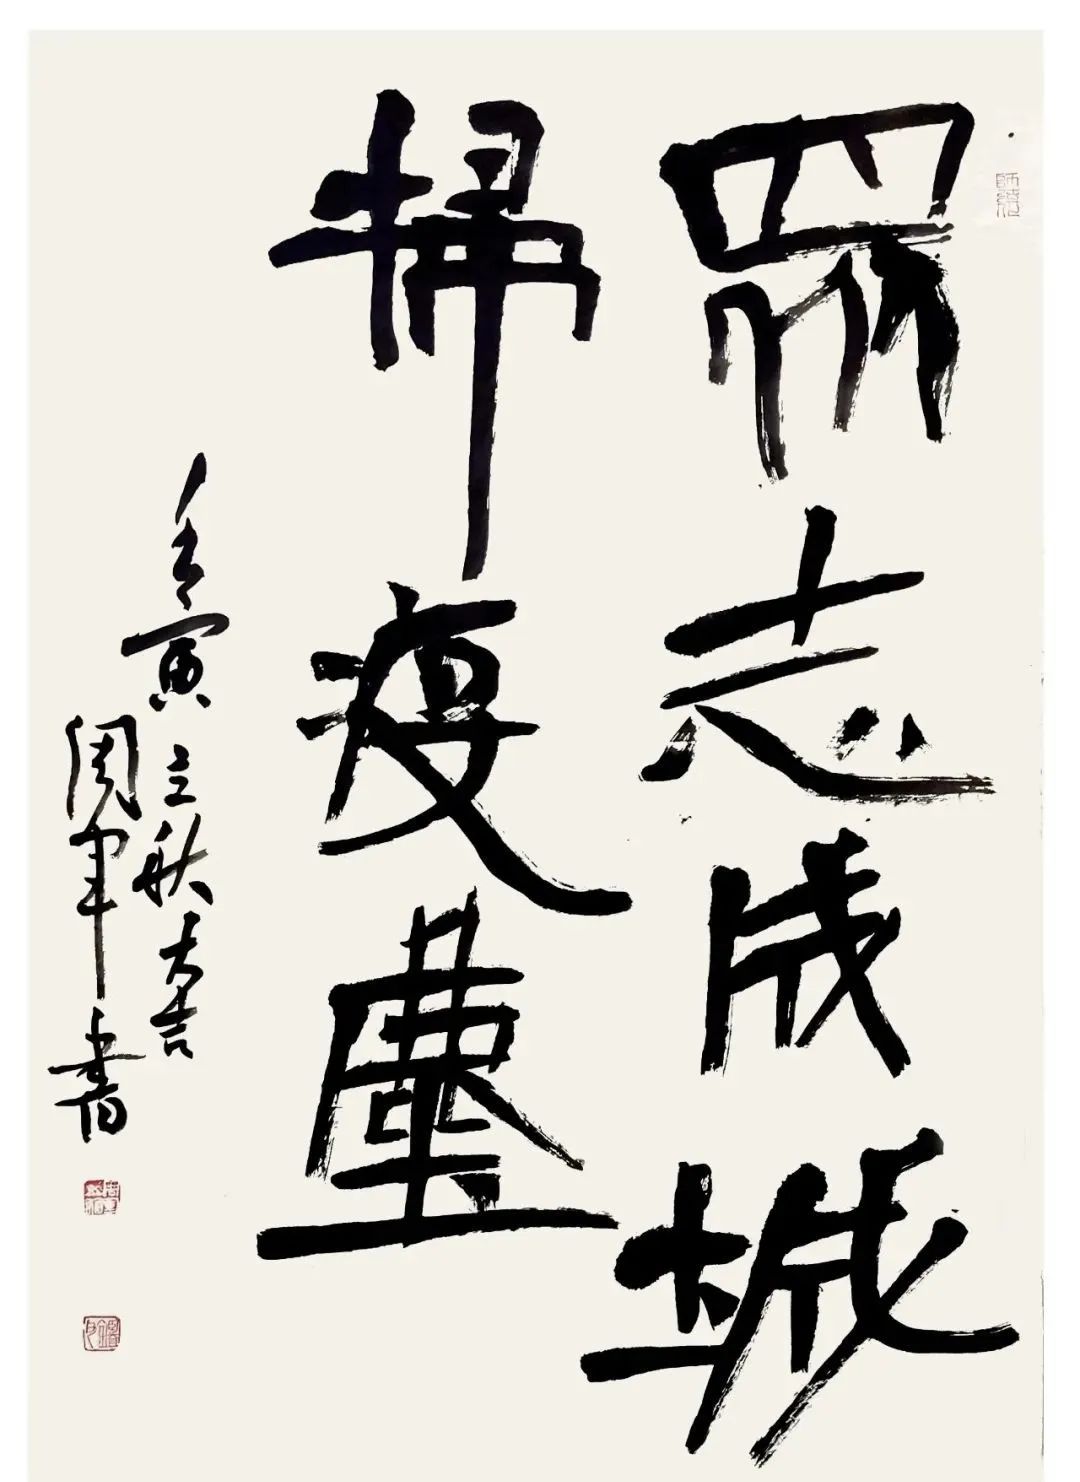 眾志成城
掃疫塵
壬寅立秋大吉
周軍書